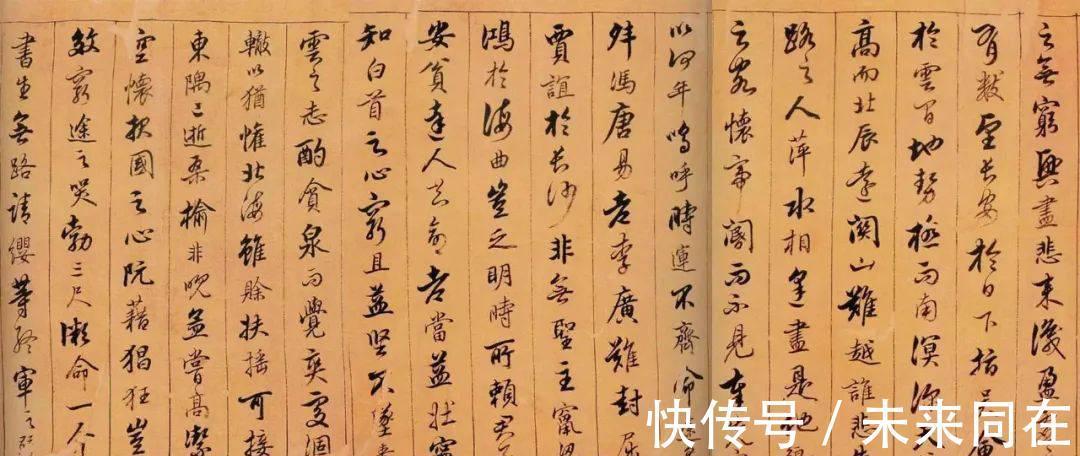 之無窮興盡悲来識盈
有数望長安於日下指吴會
於雲間地勢極而南溟深
高而北辰遠關山難越誰悲
路之人萍水相逢盡是他
之客懷帝閽而不見奉
以何年嗚呼時運不齊命途
舛馮唐易老李廣難封屈
賈誼於長沙非無聖主竄梁
鴻於海曲豈乏明時所賴君
安貧達人知命老當益壯寧
知白首之心窮且益堅不墜青
雲之志酌貪泉而覺爽處涸
轍以猶懽北海雖賒扶摇可接
東隅已逝桑榆非晚孟嘗高潔
空懷報國之心阮藉猖狂豈
效窮途之哭勃三尺微命一介
書生無路請纓等終軍之弱
快传号 / 未来同在